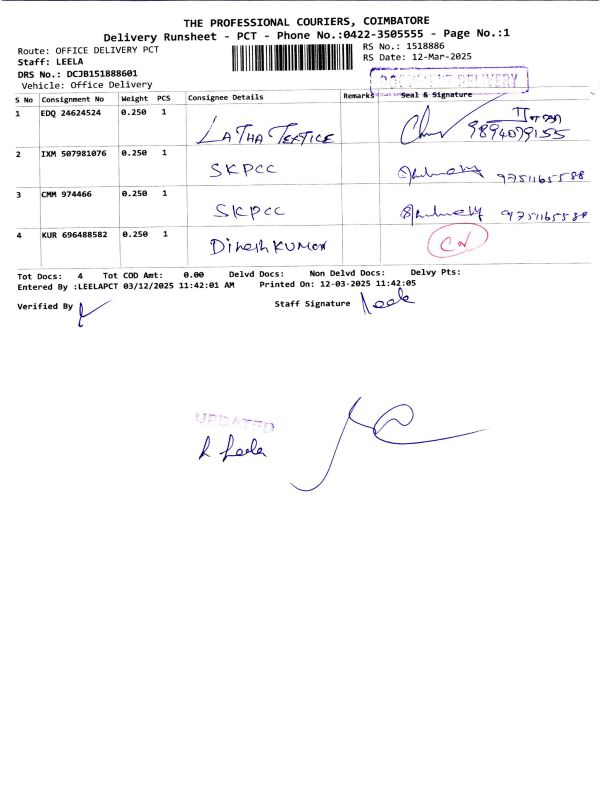 THE PROFESSIONAL COURIERS, COIMBATORE
Delivery Runsheet - PCT - Phone No.:0422-3505555 - Page No.:1
Route: OFFICE DELIVERY PCT
RS No.: 1518886
Staff: LEELA
RS Date: 12-Mar-2025
DRS No.: DCJB151888601
Vehicle: Office Delivery
DOCUMENT DELIVERY
S No Consignment No Weight PCS Consignee Details Remarks Seal & Signature
1 EDQ 24624524 0.250 1 LATHA TEXTICE 9894099155
2 IXM 507981076 0.250 1 SKPCC 9751165588
3 CMM 974466 0.250 1 SKPCC 9751165588
4 KUR 696488582 0.250 1 Dinesh KUMAR CN
Tot Docs: 4 Tot COD Amt: 0.00 Delvd Docs: Non Delvd Docs: Delvy Pts:
Entered By :LEELAPCT 03/12/2025 11:42:01 AM Printed On: 12-03-2025 11:42:05
Verified By Staff Signature Leela
UPDATED
R Leela